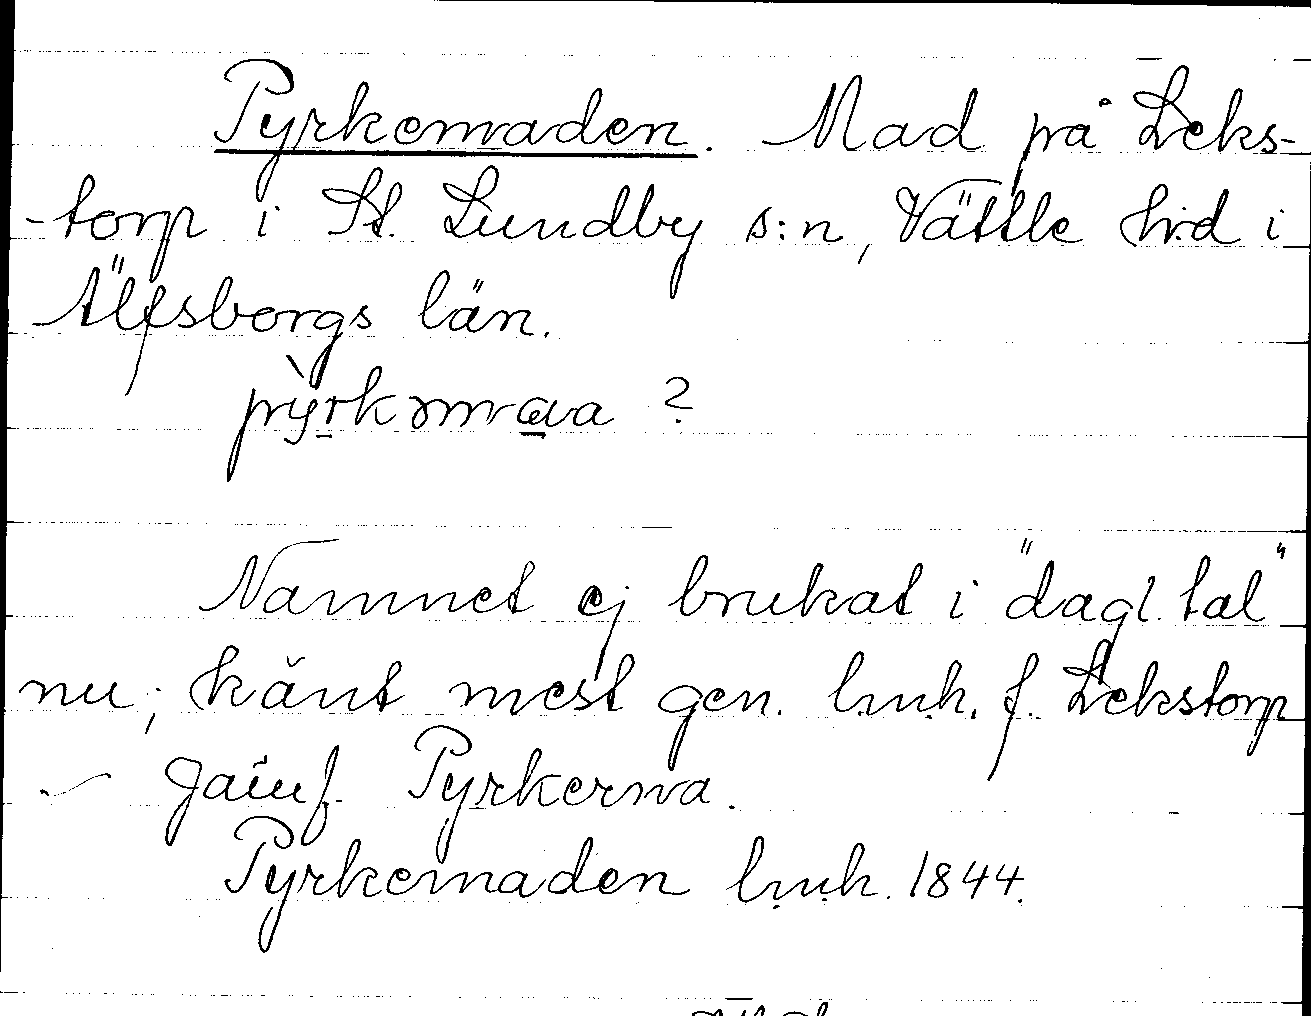 Pyrkemaden. Mad på Leks-
-torp i St. Lundby s:n, Vättle h:d i
Älfsborgs län.
Namnet ej brukat i "dagl. tal"
nu; känt mest gen. l.m.h. f. Lekstorp
Jämf. Pyrkerna.
Pyrkemaden l.m.h. 1844.